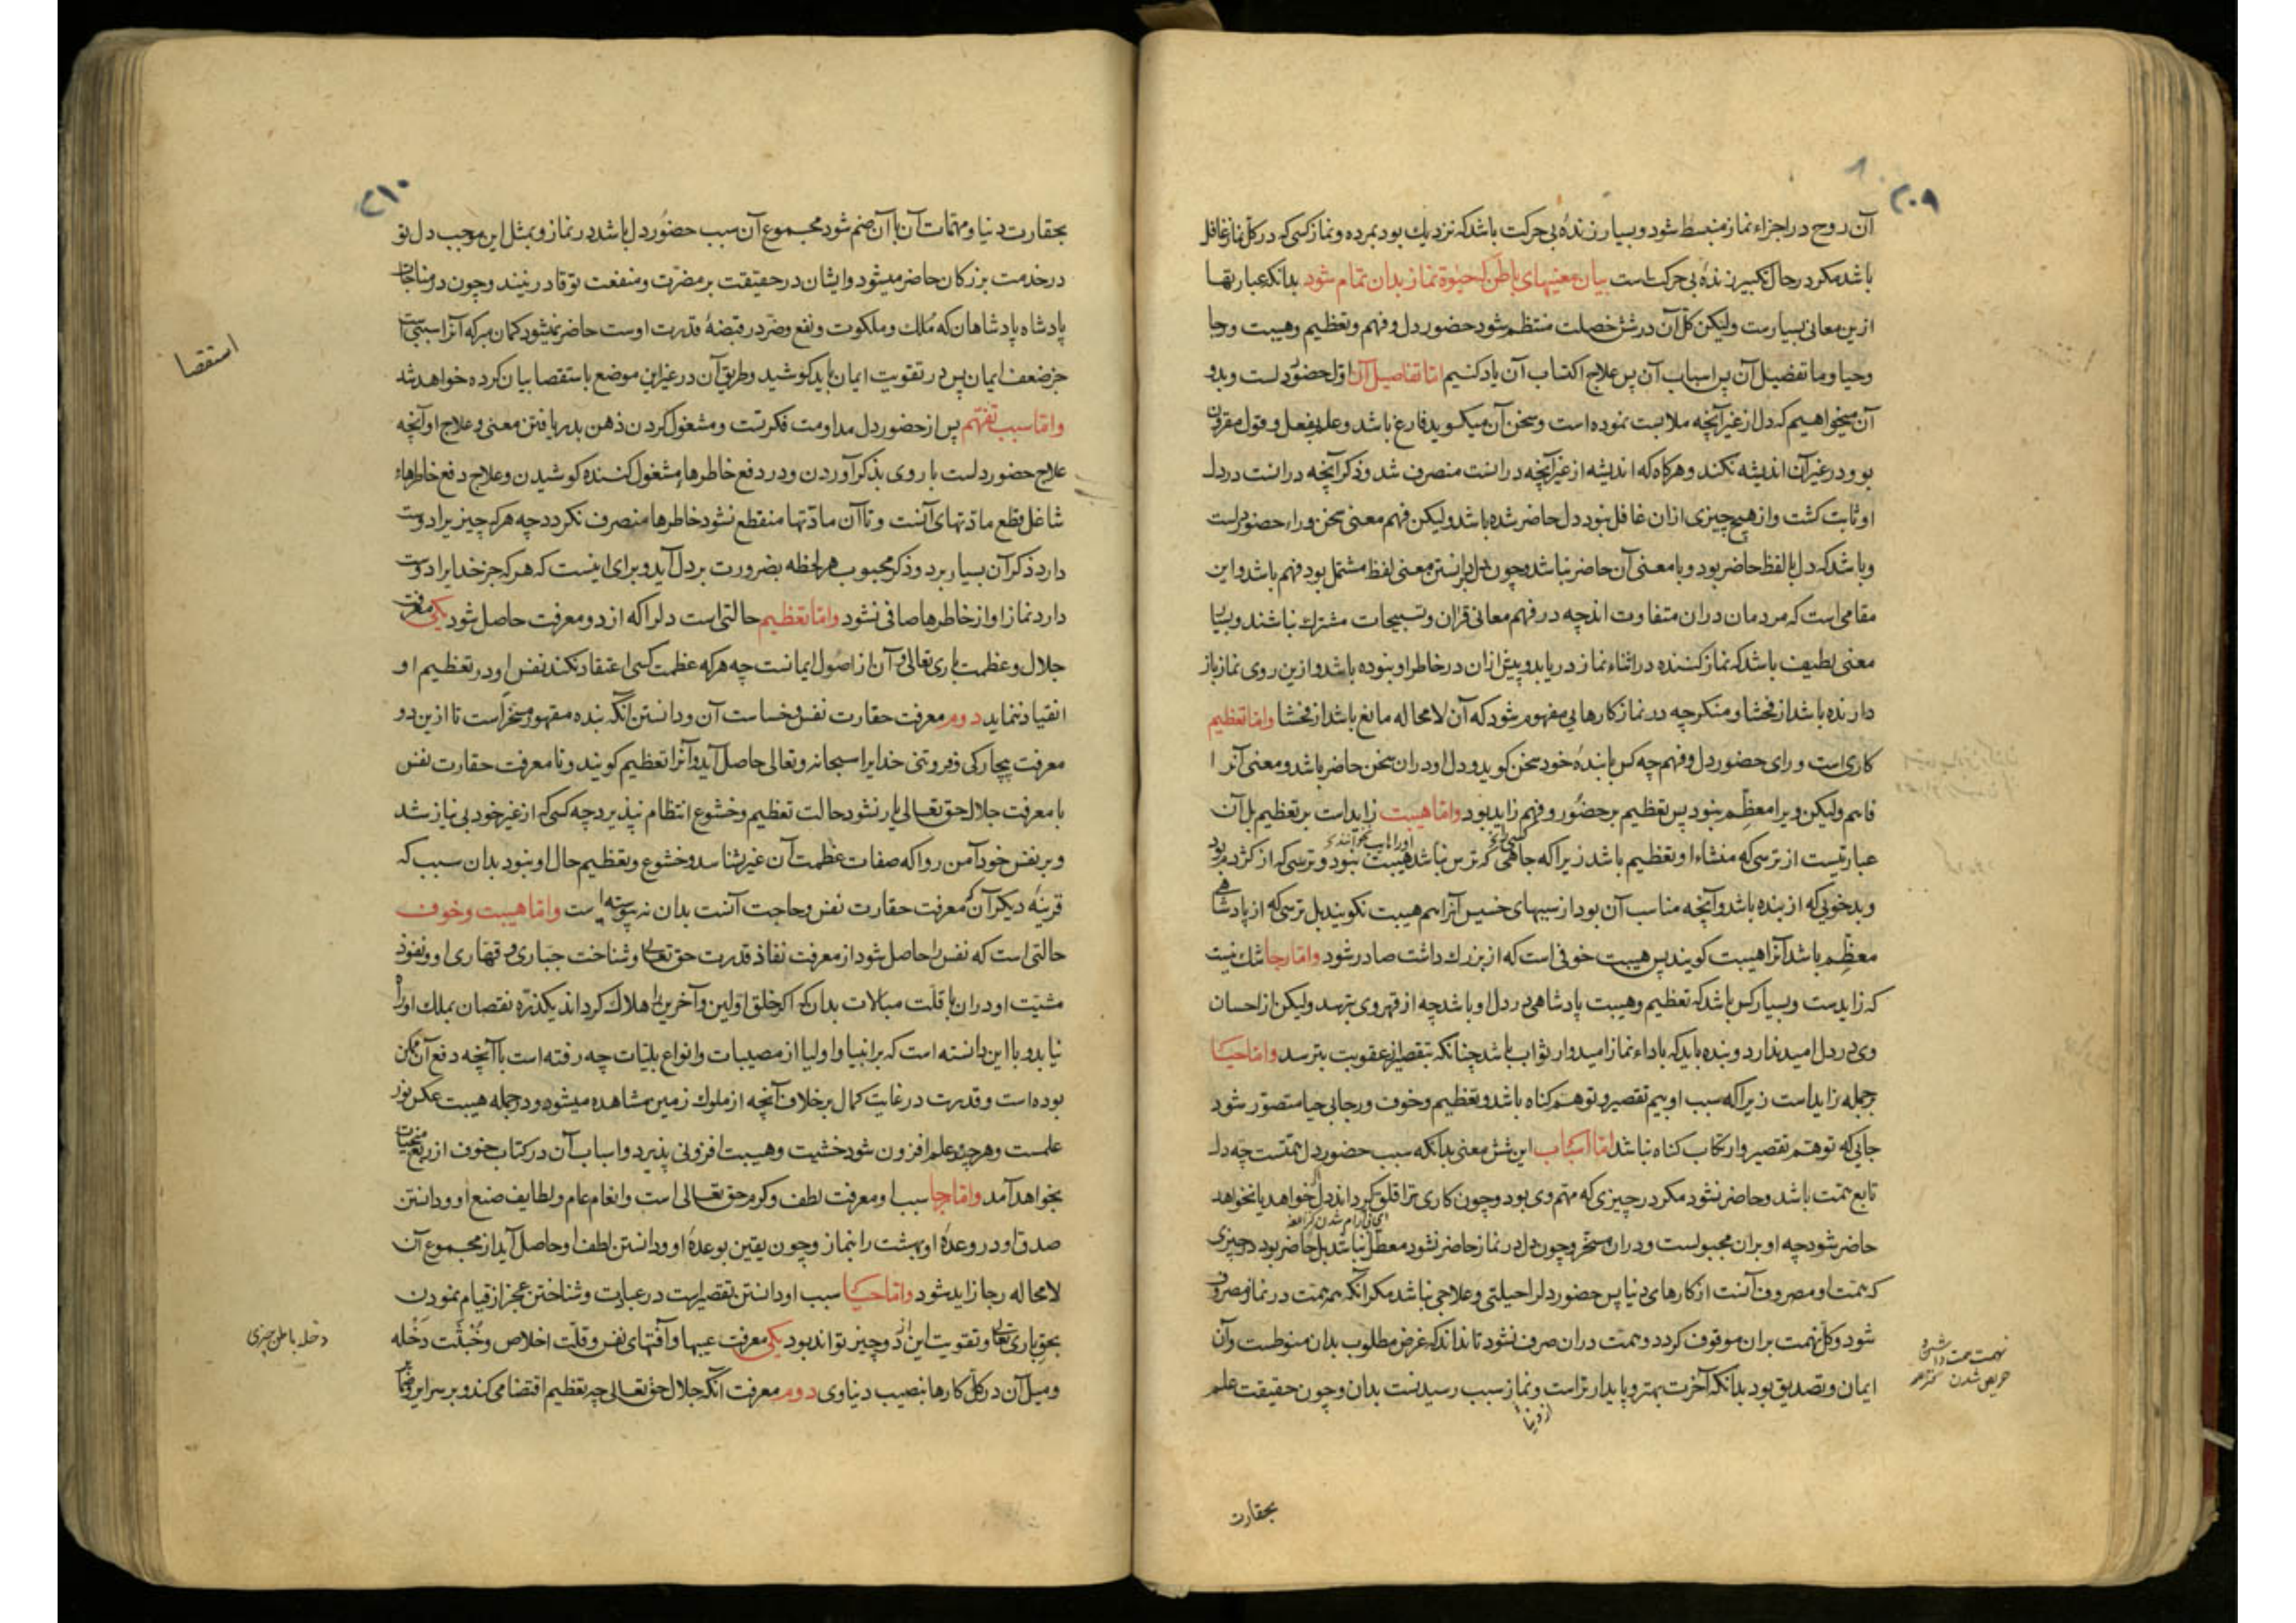 ۲۰۹
آن روح در اجزاء نماز منبسط شود و بسیار زندهٔ بی حرکت باشد که نزدیك بود بمرده و نماز کسی که در کل نماز غافل
باشد مکر در حال تکبیر زندهٔ بی حرکت است بیان معنیهای باطن که حیوة نماز بدان تمام شود بدانکه عبارتها
ازین معانی بسیارست ولیکن کل آن در شش خصلت منتظم شود حضور دل و فهم و تعظیم و هیبت و رجا
و حیا و ما تفضیل آن پس اسباب آن پس علاج اکتساب آن یاد کنیم اما تفاصیل آن اول حضور دلست و بدو
آن میخواهیم که دل از غیر آنچه ملابست نموده است و سخن آن میکوید فارغ باشد و علم بفعل و قول مقرون
بود و در غیر آن اندیشه نکند و هرکاه که اندیشه از غیر آنچه درانست منصرف شد و ذکر آنچه درانست در دل
او ثابت کشت و از هیچ چیزی ازان غافل نبود دل حاضر شده باشد ولیکن فهم معنی سخن وراء حضور دلست
و باشد که دل با لفظ حاضر بود و با معنی آن حاضر نباشد و چون دل بر دانستن معنی لفظ مشتمل بود فهم باشد و این
مقامی است که مردمان دران متفاوت اند چه در فهم معانی قرآن و تسبیحات مشترك نباشند و بسیا
معنی لطیف باشد که نماز کننده در اثناء نماز دریابد و پیش ازان در خاطر او نبوده باشد و ازین روی نماز باز
دارنده باشد از فحشا و منکر چه در نماز کارهایی مفهوم شود که آن لامحاله مانع باشد از فحشا و اما تعظیم
کاری است ورای حضور دل و فهم چه کس با بندهٔ خود سخن کوید و دل او دران سخن حاضر باشد و معنی آنرا
فاهم ولیکن ویرا معظم نبود پس تعظیم بر حضور و فهم زاید بود و اما هیبت زایداست بر تعظیم بل آن
عبارتیست از ترسی که منشاء او تعظیم باشد زیرا که جاهی که ترس نباشد هیبت نبود و ترسی که از کژدم بود
و بدخویی که از بنده باشد و آنچه مناسب آن بود از سببهای خسیس آنرا هم هیبت نکویند بل ترسی که از پادشاهی
معظم باشد آنرا هیبت کویند پس هیبت خوفی است که از بزرك داشت صادر شود و اما رجا شك نیست
که زایدست و بسیار کس باشد که تعظیم و هیبت پادشاهی در دل او باشد چه از قهر وی بترسد ولیکن از احسان
وی در دل امید ندارد و بنده باید که باداء نماز امیدوار ثواب باشد چنانکه بتقصیر از عقوبت بترسد و اما حیا
بر جمله زایداست زیرا که سبب او بیم تقصیر و توهم کناه باشد و تعظیم و خوف و رجا بی حیا متصور شود
جایی که توهم تقصیر و ارتکاب کناه نباشد اما اسباب این شش معنی بدانکه سبب حضور دل همتست چه دل
تابع همت باشد و حاضر نشود مکر در چیزی که مهم وی بود و چون کاری ترا قلق کرداند دل خواهد یا نخواهد
حاضر شود چه او بران مجبولست و دران مسخر و چون دل در نماز حاضر نشود معطل نباشد بل حاضر بود در چیزی
که همت او مصروف آنست از کارهای دنیا پس حضور دلرا حیلتی و علاجی نباشد مکر آنکه همت در نماز مصروف
شود و کل نهمت بران موقوف کردد و همت دران صرف نشود تا نداند که غرض مطلوب بدان منوطست و آن
ایمان و تصدیق بود بدانکه آخرت بهتر و پایدارتر است و نماز سبب رسیدنست بدان و چون حقیقت علم
از دنیا
بحقارت
۲۱۰
بحقارت دنیا و مهمات آن با آن ضم شود مجموع آن سبب حضور دل باشد در نماز و بمثل این موجب دل تو
در خدمت بزرکان حاضر میشود و ایشان در حقیقت بر مضرت و منفعت تو قادر نیند و چون در مناجات
پادشاه پادشاهان که مُلك و ملکوت و نفع و ضر در قبضهٔ قدرت اوست حاضر نمیشود کمان مبر که آنرا سببی است
جز ضعف ایمان پس در تقویت ایمان باید کوشید و طریق آن در غیر این موضع باستقصا بیان کرده خواهد شد
استقصا
و اما سبب تفهم پس از حضور دل مداومت فکرتست و مشغول کردن ذهن بدریافتن معنی و علاج او آنچه
علاج حضور دلست با روی بذکر آوردن و در دفع خاطرهاء مشغول کننده کوشیدن و علاج دفع خاطرهاء
شاغل قطع مادتهای آنست و تا آن مادتها منقطع نشود خاطرها منصرف نکردد چه هر که چیزیرا دوست
دارد ذکر آن بسیار برد و ذکر محبوب هر لحظه بضرورت بر دل آید و برای اینست که هر که جز خدایرا دوست
دارد نماز او از خاطرها صافی نشود و اما تعظیم حالتی است دلرا که از دو معرفت حاصل شود یکی معرفت
جلال و عظمت باری تعالی و آن از اصول ایمانست چه هر که عظمت کسی اعتقاد نکند نفس او در تعظیم او
انقیاد ننماید دوم معرفت حقارت نفس و خساست آن و دانستن آنکه بنده مقهور و مسخر است تا ازین دو
معرفت بیچارکی و فروتنی خدایرا سبحانه و تعالی حاصل آید و آنرا تعظیم کویند و تا معرفت حقارت نفس
با معرفت جلال حق تعالی یار نشود حالت تعظیم و خشوع انتظام نپذیرد چه کسی که از غیر خود بی نیاز شد
و بر نفس خود آمن روا که صفات عظمت آن غیر شناسد و خشوع و تعظیم حال او نبود بدان سبب که
قرینهٔ دیکر آن که معرفت حقارت نفس و حاجت آنست بدان نپیوسته است و اما هیبت و خوف
حالتی است که نفس را حاصل شود از معرفت نفاذ قدرت حق تعالی و شناخت جباری و قهاری او و نفوذ
مشیت او دران با قلت مبالات بدان که اکر خلق اولین و آخرین را هلاك کرداند یکذره نقصان بملك او راه
نیابد و با این دانسته است که بر انبیا و اولیا از مصیبات و انواع بلیات چه رفته است با آنچه دفع آن ممکن
بوده است و قدرت در غایت کمال بر خلاف آنچه از ملوك زمین مشاهده میشود و در جمله هیبت عکس نور
علمست و هر چند علم افزون شود خشیت و هیبت افزونی پذیرد و اسباب آن در کتاب خوف از ربع منجیات
بخواهد آمد و اما رجا سبب او معرفت لطف و کرم حق تعالی است و انعام عام و لطایف صنع او و دانستن
صدق او در وعدهٔ او بهشت را بنماز و چون یقین بوعدهٔ او و دانستن لطف او حاصل آید از مجموع آن
لامحاله رجا زاید شود و اما حیا سبب او دانستن تقصیر است در عبادت و شناختن عجز از قیام نمودن
بحق باری تعالی و تقویت این از دو چیز تواند بود یکی معرفت عیبها و آفتهای نفس و قلت اخلاص و خُبثت دَخُله
و میل آن در کل کارها بنصیب دنیاوی دوم معرفت آنکه جلال حق تعالی چه تعظیم اقتضا می کند و بر سرایر و ضمایر
دخله باطن چیزی